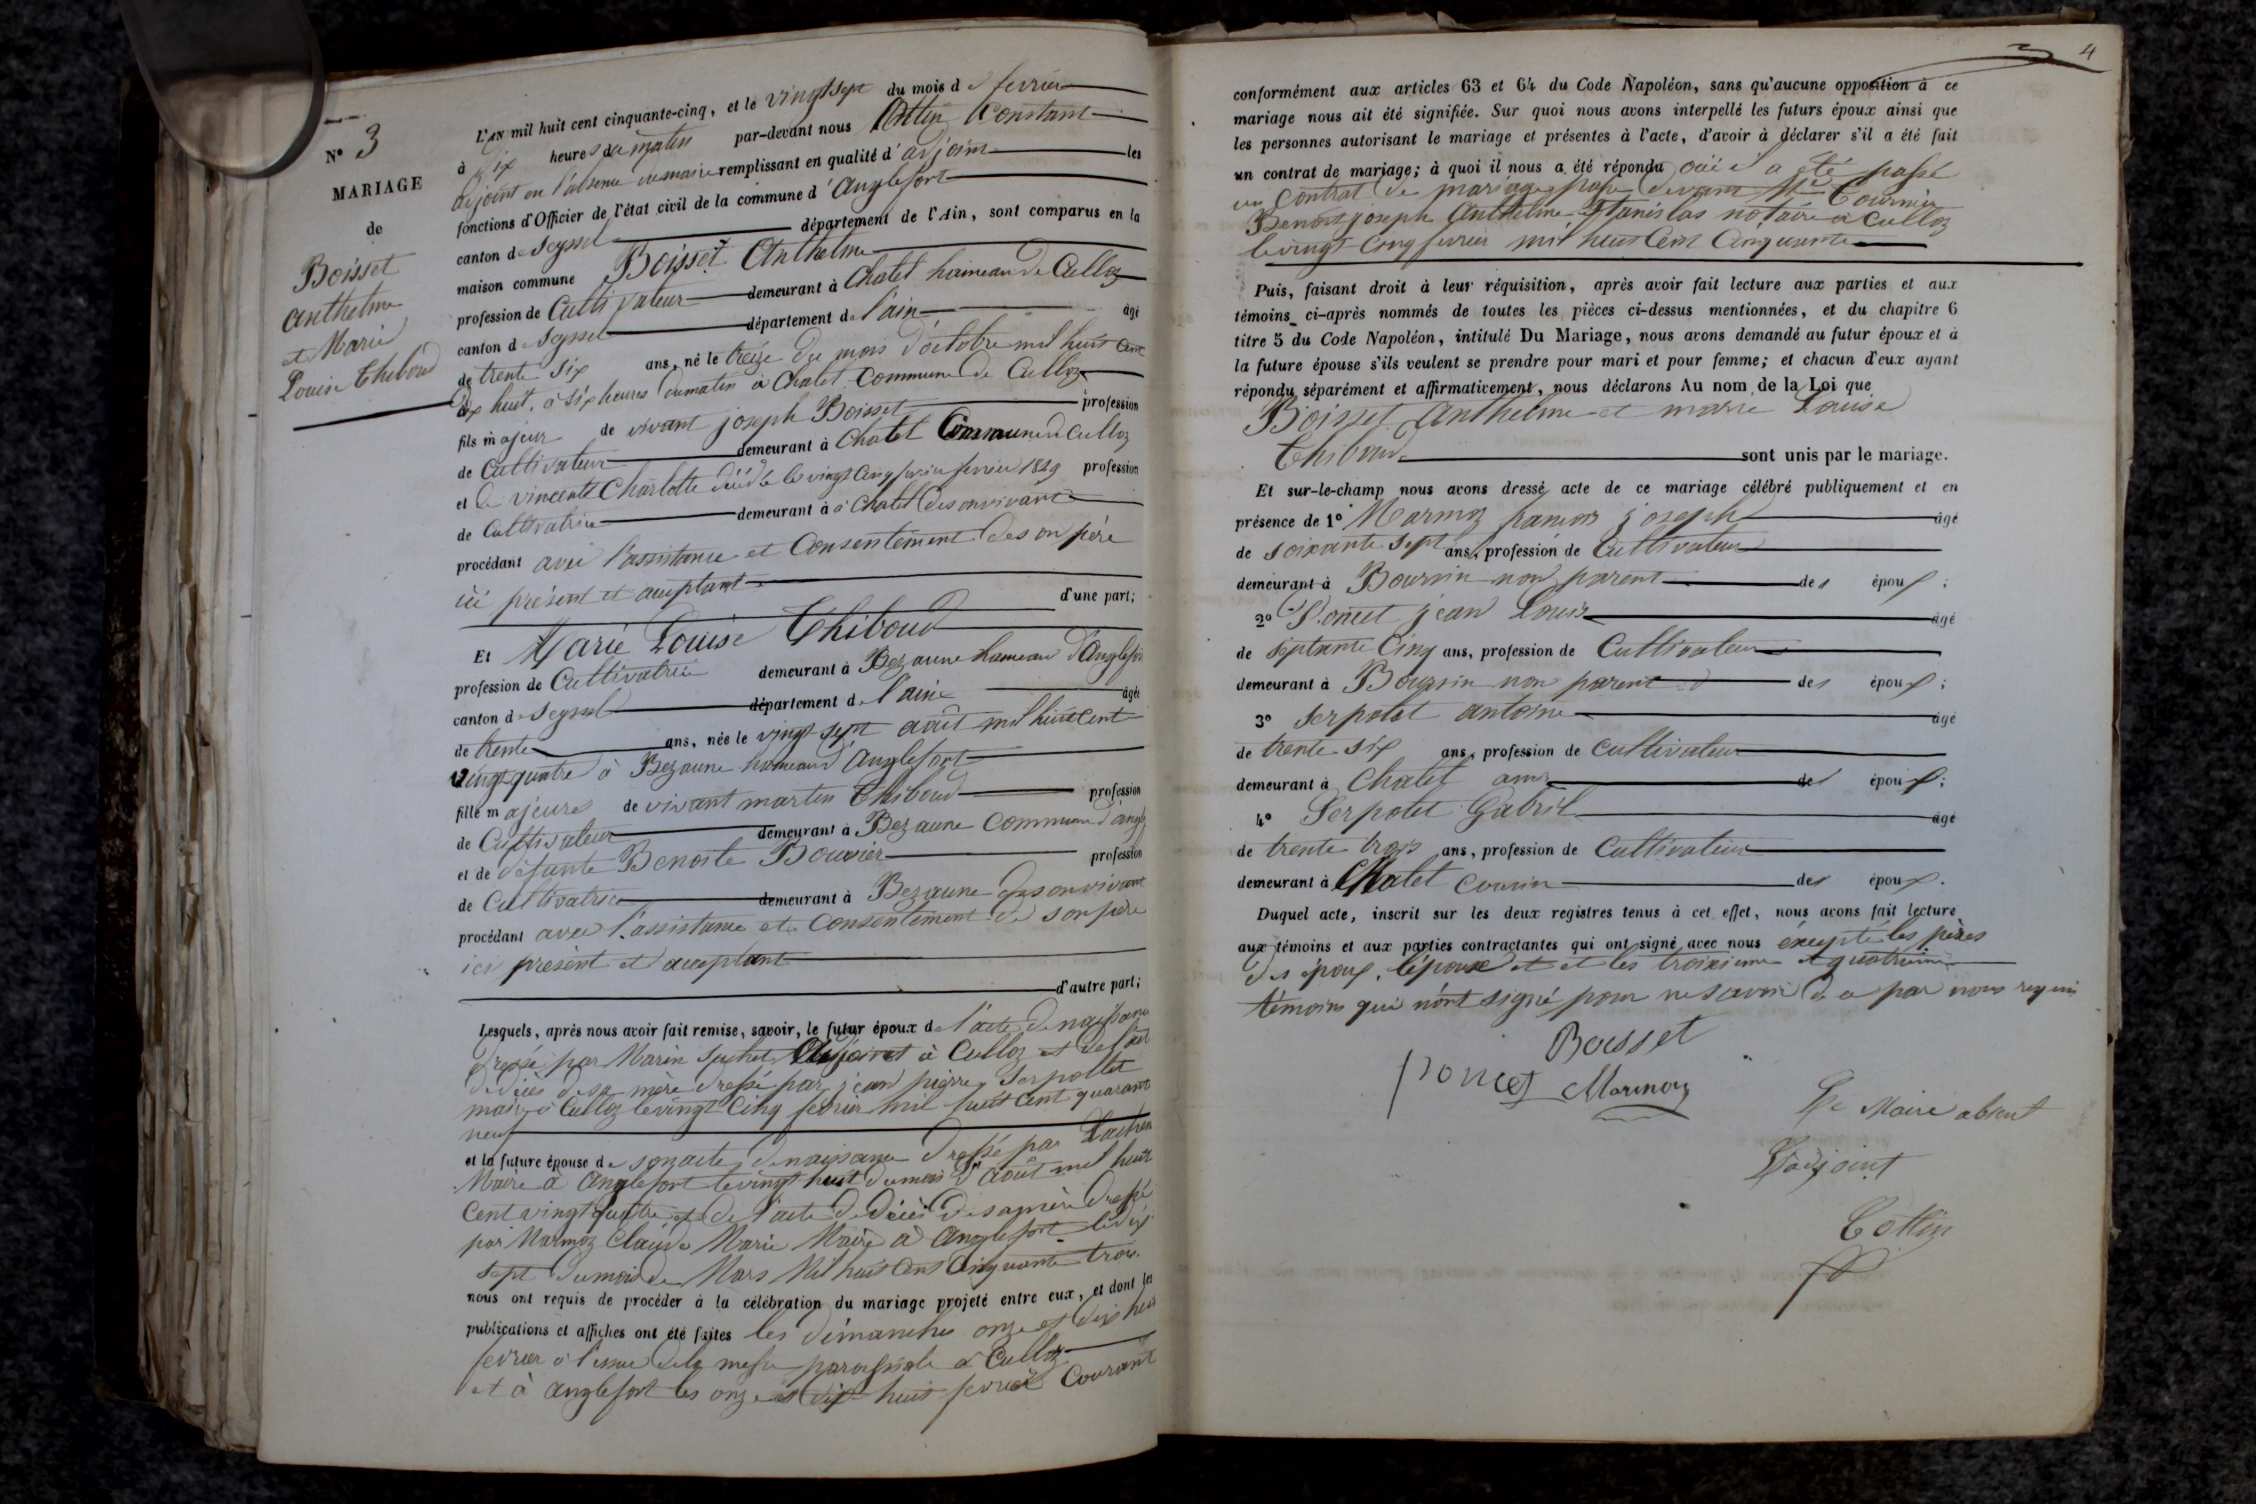 N° 3
MARIAGE
de
Boisset
anthelme
et Marie
Louise Thiboud
L'AN mil huit cent cinquante-cinq, et le vingt sept du mois de fevrier
à dix heures du matin par-devant nous Cottin Constant
adjoint en l'absence du maire remplissant en qualité d'adjoint les
fonctions d'Officier de l'état civil de la commune d'Anglefort
canton de Seyssel département de l'Ain, sont comparus en la
maison commune Boisset Anthelme
profession de Cultivateur demeurant à Chatel hameau de Culloz
canton d Seyssel département de l'ain âgé
de trente six ans, né le treize du mois d'octobre mil huit cent
dix huit, à six heures du matin à Chatel commune de Culloz
fils majeur de vivant joseph Boisset profession
de Cultivateur demeurant à Chatel Commune de Culloz
et de vincente Charlotte décédée le vingt cinq fevrier 1849 profession
de Cultivatrice demeurant à à Chatel de son vivant
procédant avec l'assistance et Consentement de son père
ici présent et acceptant
d'une part;
Et Marie Louise Thiboud
profession de Cultivatrice demeurant à Bezaune hameau d'Anglefort
canton de Seyssel département de l'ain âgée
de trente ans, née le vingt sept août mil huit cent
vingt quatre à Bezaune hameau d'Anglefort
fille majeure de vivant martin Thiboud profession
de Cultivateur demeurant à Bezaune commune d'angle
et de défunte Benoite Bouvier profession
de Cultivatrice demeurant à Bezaune de son vivant
procédant avec l'assistance et Consentement de son père
ici présent et acceptant
d'autre part;
Lesquels, après nous avoir fait remise, savoir, le futur époux de l'acte de naissance
dressé par Marin adjoint à Culloz et de l'acte
de décès de sa mère dressé par jean pierre Serpollet
maire à Culloz le vingt cinq fevrier mil huit cent quarant
neuf
et la future épouse de son acte de naissance dressé par
Maire à Anglefort le vingt huit du mois d'Août mil huit
cent vingt quatre et de l'acte de décès de sa mère dressé
par Marmoz Claude Marie Maire à Anglefort le dix
sept du mois de Mars Mil huit cent cinquante trois
nous ont requis de procéder à la célébration du mariage projeté entre eux, et dont les
publications et affiches ont été faites les dimanches onze et dix huit
fevrier à l'issue de la messe paroissiale à Culloz
et à anglefort les onze et dix huit fevrier Courant
4
conformément aux articles 63 et 64 du Code Napoléon, sans qu'aucune opposition à ce
mariage nous ait été signifiée. Sur quoi nous avons interpellé les futurs époux ainsi que
les personnes autorisant le mariage et présentes à l'acte, d'avoir à déclarer s'il a été fait
un contrat de mariage; à quoi il nous a été répondu oui il a été passé
un contrat de mariage passé devant Me Tournier
Benoit joseph Anthelme Stanislas notaire à Culloz
le vingt cinq fevrier mil huit Cent Cinquante
Puis, faisant droit à leur réquisition, après avoir fait lecture aux parties et aux
témoins ci-après nommés de toutes les pièces ci-dessus mentionnées, et du chapitre 6
titre 5 du Code Napoléon, intitulé Du Mariage, nous avons demandé au futur époux et à
la future épouse s'ils veulent se prendre pour mari et pour femme; et chacun d'eux ayant
répondu séparément et affirmativement, nous déclarons Au nom de la Loi que
Boisset Anthelme et marie Louise
Thiboud sont unis par le mariage.
Et sur-le-champ nous avons dressé acte de ce mariage célébré publiquement et en
présence de 1° Marmoz françois joseph âgé
de soixante sept ans, profession de Cultivateur
demeurant à Boursin non parent des époux;
2° Poncet jean Louis âgé
de septante cinq ans, profession de Cultivateur
demeurant à Boursin non parent des époux;
3° Serpolet antoine âgé
de trente six ans, profession de Cultivateur
demeurant à Chatel ami des époux;
4° Serpolet Gabriel âgé
de trente trois ans, profession de Cultivateur
demeurant à Chatel cousin des époux.
Duquel acte, inscrit sur les deux registres tenus à cet effet, nous avons fait lecture
aux témoins et aux parties contractantes qui ont signé avec nous excepté les pères
des époux, l'épouse et et les troixieme et quatrieme
témoins qui n'ont signé pour ne savoir de ce par nous requis
Boisset
poncet Marmoz
Le Maire absent
L'adjoint
Cottin